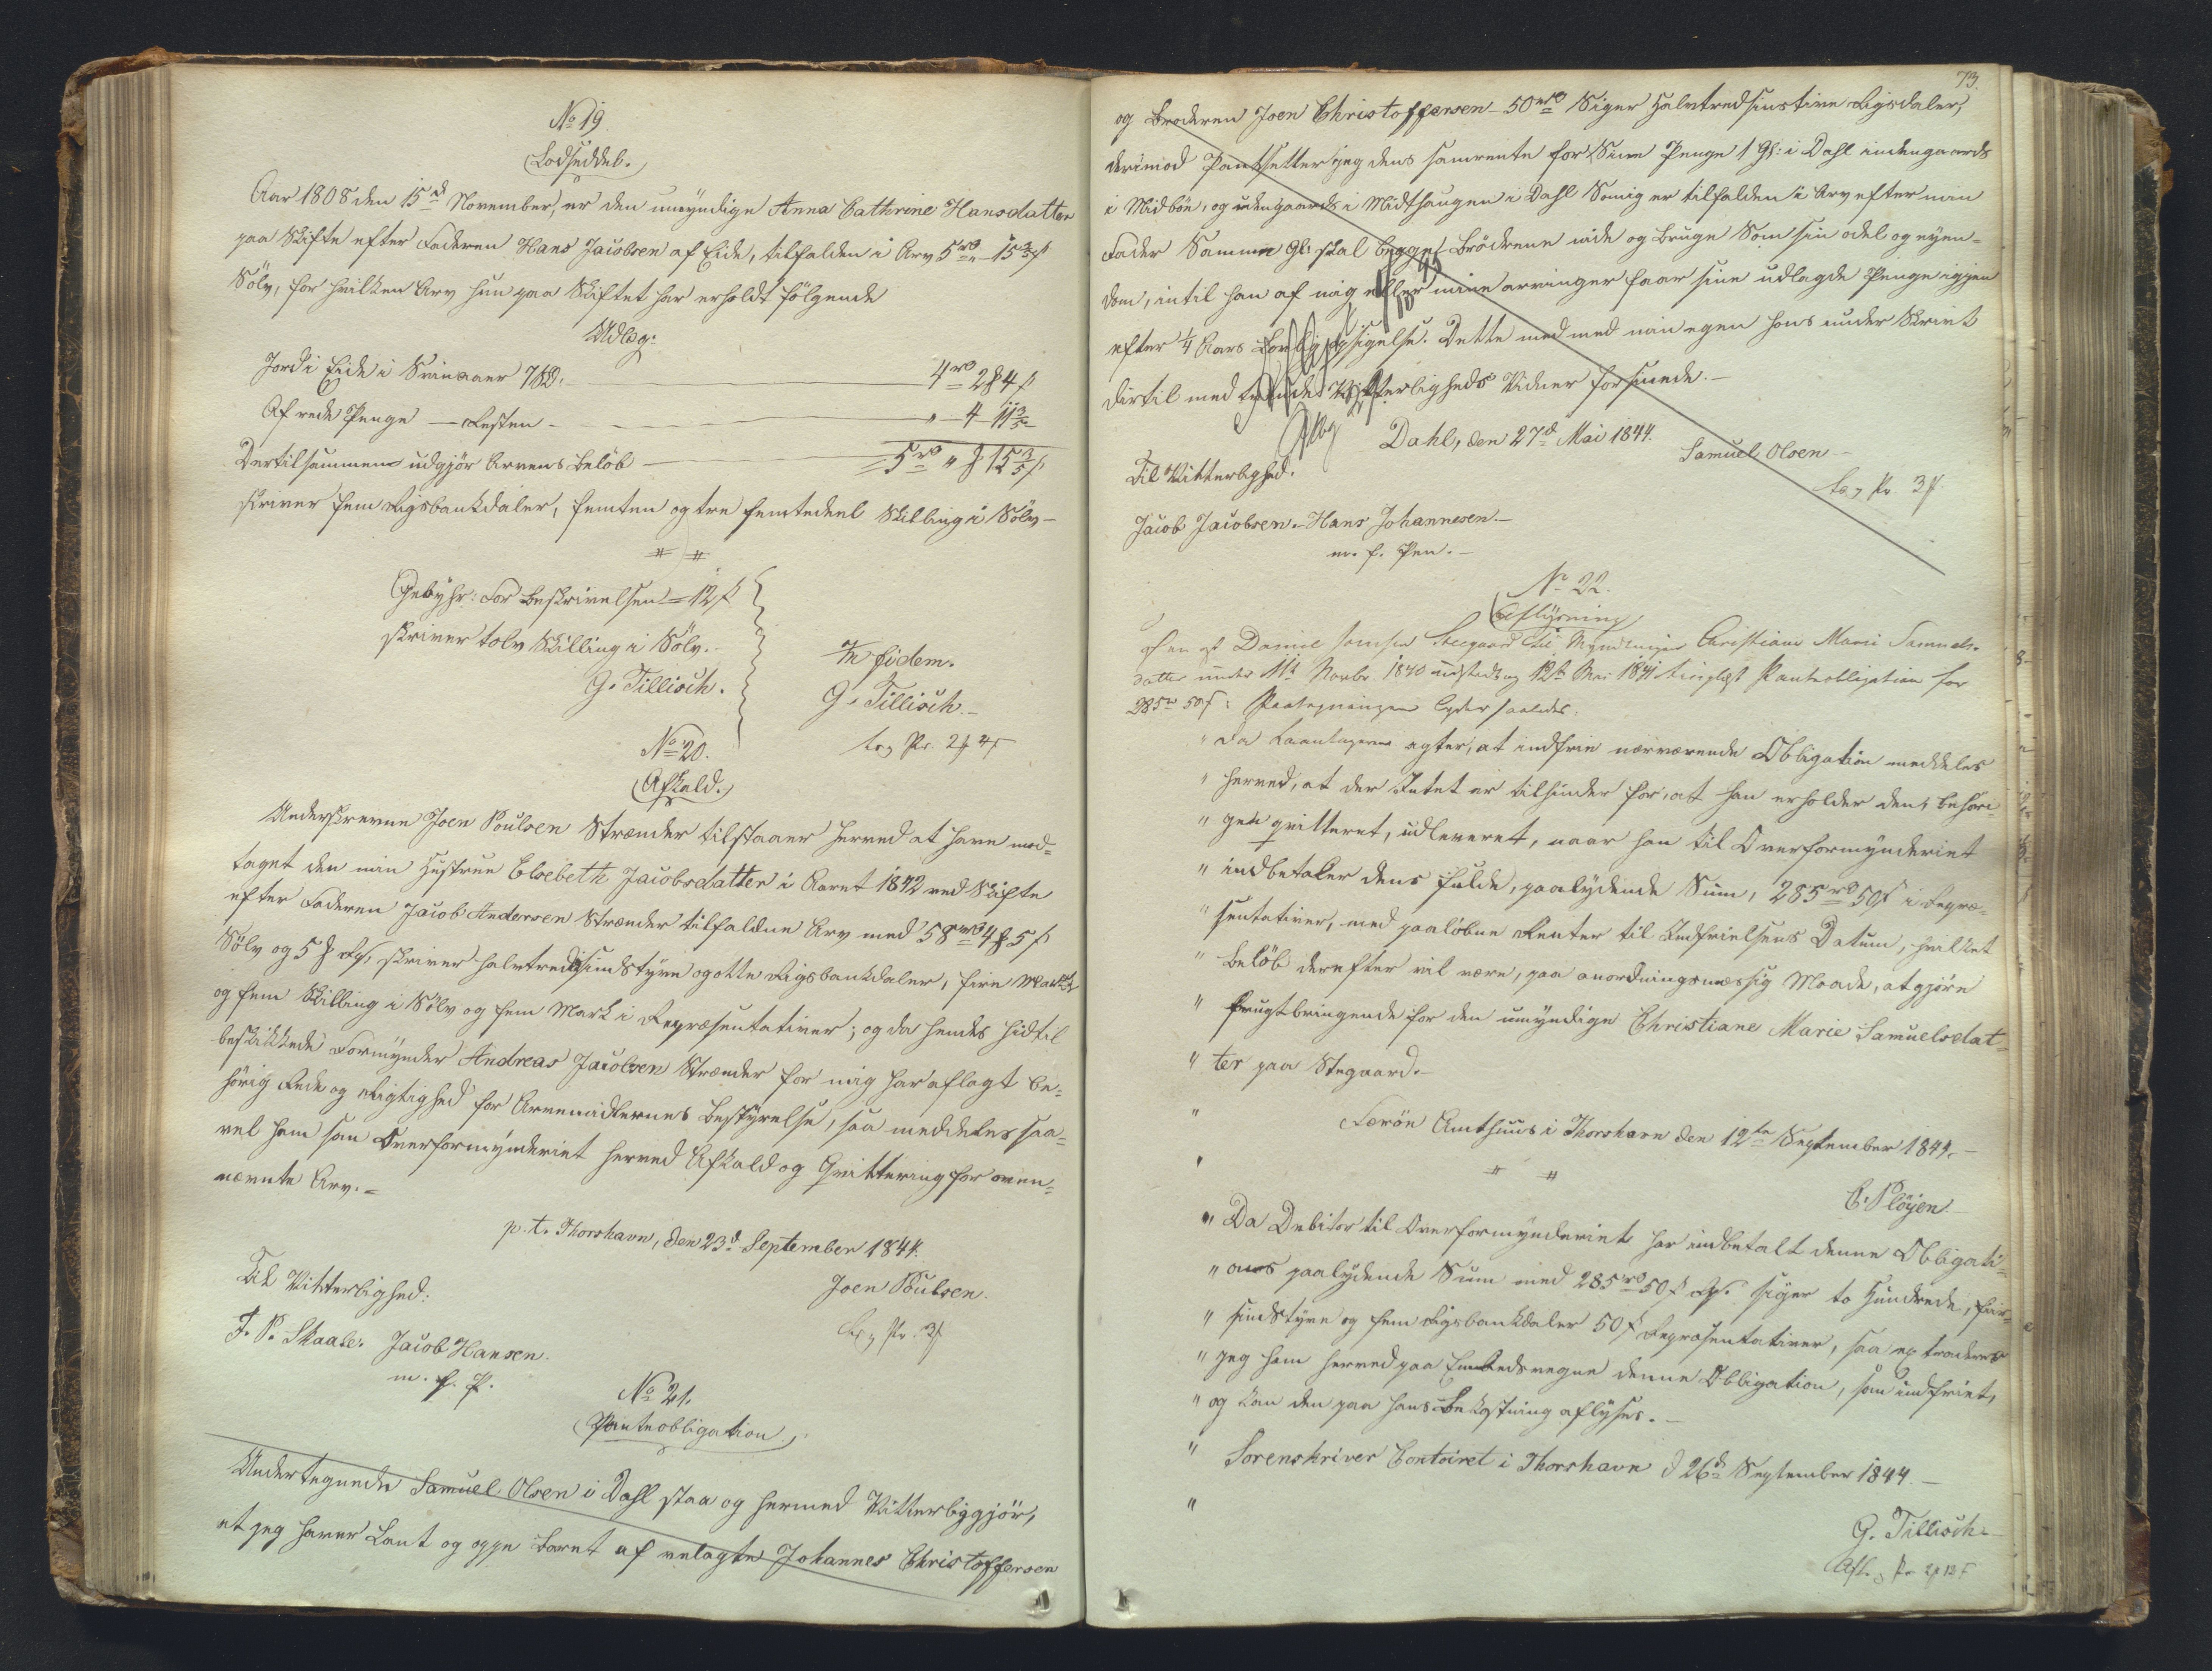 No 19.
Lodseddel.
Aar 1808 den 15de November, er den umyndige Anna Cathrine Hansdatter
paa Skifte efter Faderen Hans Jacobsen af Eide, tilfalden i Arv 5rd „ 15 3/5 s
Sölv, for hvilken Arv hun paa Skiftet har erholdt fölgende
Udlæg:
Jord i Eide i Svinaaer 7 Skd. 4rd 2 # 4 s
Af rede Penge — Resten - „ 4 11 3/5
Dertilsammen udgjör Arvens Belöb — 5rd „ # 15 3/5 s
skriver fem Rigsbankdaler, femten og tre femtedeel Skilling i Sölv —
Gebyhr: For Beskrivelsen = 12 s
skriver tolv Skilling i Sölv. -
G. Tillisch.
In fidem.
G. Tillisch. -
No 20.
Afkald.
Underskrevne Joen Poulsen Strænder tilstaaer herved at have mod-
taget den min Hustrue Elsebeth Jacobsdatter i Aaret 1842 ved Skifte
efter Faderen Jacob Andersen Strænder tilfaldne Arv med 58rd 4 # 5 s
Sölv og 5 # rp, skriver halvtredsindstyve og otte Rigsbankdaler, fire Mark
og fem Skilling i Sölv og fem Mark i Repræsentativer; og da hendes hidtil
beskikkede Formynder Andreas Jacobsen Strænder for mig har aflagt be-
hörig Rede og Rigtighed for Arvemidlernes Bestyrelse, saa meddeles saa-
vel ham som Overformynderiet herved Afkald og Qvittering for oven-
nævnte Arv. =
p. t. Thorshavn, den 23d September 1844.
Til Vitterlighed:
Joen Poulsen.
F. P. Skaale. Jacob Hansen.
m. f. P.
No 21.
Panteobligation
Undertegnede Samuel Olsen i Dahl staa og hermed Vitterliggjör,
at jeg haver Lant og oppe baret af velagte Johannes Christoffersen
73.
og Broderen Joen Christoffersen - 50rd Siger Halvtredsinstive Rigsdaler,
derimod Pantsetter jeg dens samrente for Sine Penge 1 Gl: i Dahl indengaards
i Midböe, og udengaards i Midthaugen i Dahl Som ig er tilfalden i Arv efter min
Fader Samme Gl: skal begge Brödrene nide og bruge Som sin odel og eyen-
dom, intil han af mig eller mine arvinger faar sine udlagde Penge igjen
efter 1/4 Aars Lovlig opsigelse. Dette med med min egen hons under Skrivt
dertil med Vitterligheds Vidner forsinede. -
Dahl, den 27d Mai 1844.
Samuel Olsen -
Til Vitterlighed.
Jacob Jacobsen. - Hans Johannesen. -
m. f. Pen. -
No 22.
Aflysning
af en af Daniel Stegaard til Myndlingen Christiane Marie Samuels-
datter under 11te Novbr. 1840 udstedt og 12te Mai 1841 tinglæst Panteobligation for
285rd 50 s: Paategningen lyder saaledes:
„ Da Laantageren agter, at indfrie nærværende Obligation meddeles
„ herved, at der Intet er tilhinder for, at han erholder den, behöri-
„ gen qvitteret, udleveret, naar han til Overformynderiet
„ indbetaler dens fulde, paalydende Sum, 285rd 50 s i Repræ-
„ sentativer, med paalöbne Renter til Indfrielsens Datum, hvilket
„ Belöb derefter vil være, paa anordningsmæssig Maade, at gjöre
„ frugtbringende for den umyndige Christiane Marie Samuelsdat-
„ ter paa Stegaard. -
„ Færön Amthuus i Thorshavn den 12te September 1844. -
C. Plöyen. -
„ Da Debitor til Overformynderiet har indbetalt denne Obligati-
„ ons paalydende Sum med 285rd 50 s rp. siger to Hundrede, fiir-
„ sindstyve og fem Rigsbankdaler 50 s Repræsentativer, saa extraderes
„ jeg ham herved paa Embedsvegne denne Obligation, som indfriet,
„ og kan den paa hans Bekostning aflyses. -
„ Sorenskriver Contoiret i Thorshavn d 26de September 1844. -
„
G. Tillisch -